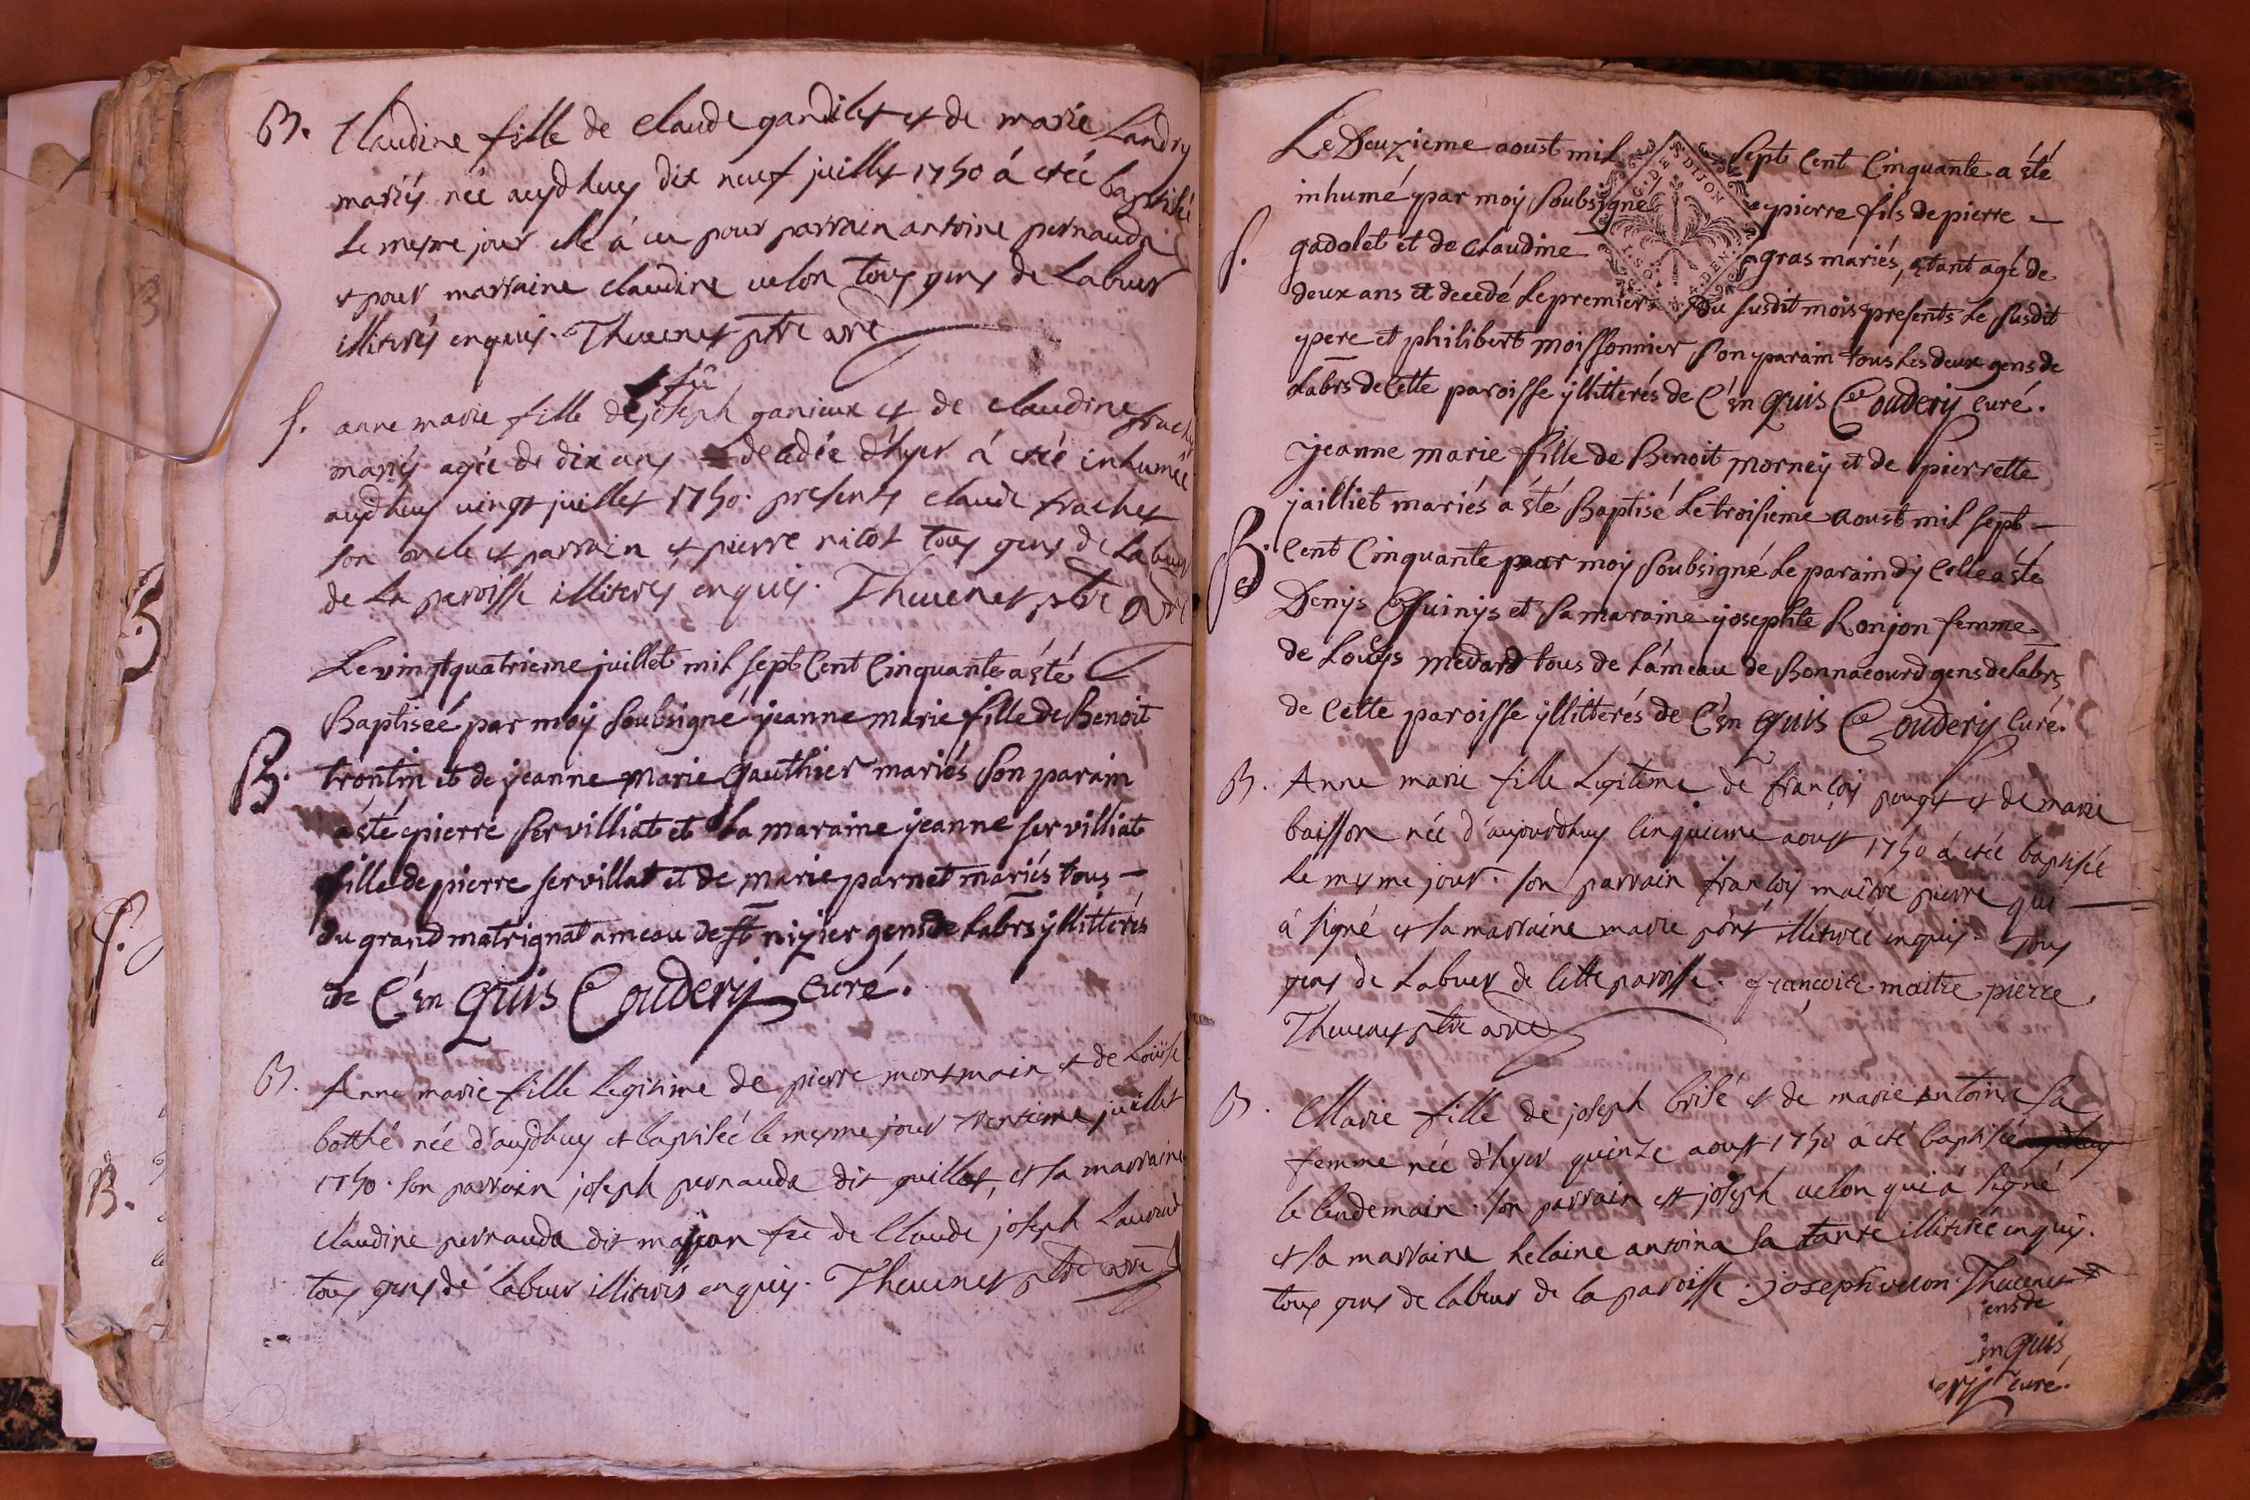 B. Claudine fille de claude gandilet et de marie Landry
mariés née aujdhuy dix neuf juillet 1750 á etée baptisée
le mesme jour elle á eu pour parrain antoine pernaude
et pour marraine claudine uelon tous gens de Labeur
illiterés enquis. Theuenet ptre
fû
S. anne marie fille de joseph ganieux et de claudine frachet
mariés agée de dix ans decédée d'hyer á etée inhumée
aujdhuy uingt juillet 1750. presents claude frachet
son oncle et parrain et pierre nilot tous gens de Labeur
de La paroisse illiterés enquis. Theuenet ptre
Le vingtquatrieme juillet mil sept Cent Cinquante a śté
Baptiseé par moy soubsigné jeanne marie fille de Benoit
B. trontin et de jeanne marie Gauthier mariés son parain
a śté pierre servilliat et sa maraine jeanne servilliat
fille de pierre servillat et de marie parnet mariés tous
du grand matrignat ameau de st nizier gens de Labrs yllitterés
de C'en Quis Coudery Curé.
B. Anne marie fille Legitime de pierre montmain et de Loüise
botthé née d'aujdhuy et baptisée le mesme jour trentieme juillet
1750. son parrain joseph pernaude dit guillot, et sa marraine
claudine pernaude dit majeon fe de Claude joseph Laurend
tous gens de labeur illiterés enquis. Theuenet ptre
Le Deuzieme aoust mil sept Cent Cinquante a śté
G. DE DIJON
inhumé par moy soubsigné pierre fils de pierre
S. gadolet et de Claudine gras mariés, etant agé de
deux ans et decedé Le premier Du susdit mois presents Le susdit
pere et philibert moissonnier son parain tous Les deux gens de
Labrs de Cette paroisse yllitterés de C'en Quis Coudery Curé.
jeanne marie fille de Benoit morney et de pierrette
jailliet mariés a śté Baptisé Le troisieme aoust mil sept
B. Cent Cinquante par moy soubsigné Le parain dy Celle a śté
Denys Guinys et sa maraine josephte Lonjon femme
de Loüys medard tous de L'ameau de Bonnacourd gens de Labrs
de Cette paroisse yllitterés de C'en Quis Coudery Curé.
B. Anne marie fille Legitime de françois pouget et de marie
buisson née d'aujourdhuy Cinquieme aoust 1750 á etée baptisée
Le mesme jour. son parrain françois maitre pierre qui
á signé et sa marraine marie illiterée enquis. Tous
gens de Labeur de Cette paroisse. françois maitre pierre.
Theuenet ptre
B. Marie fille de joseph brisé et de marie antoina sa
femme née d'hyer quinze aoust 1750 á été baptisée aujdhuy
le lendemain. son parrain est joseph uelon qui á signé
et sa marraine helaine antoina sa tante illiterée enquis.
tous gens de labeur de la paroisse. joseph velon Theuenet
ens de
en quis
ery Curé.